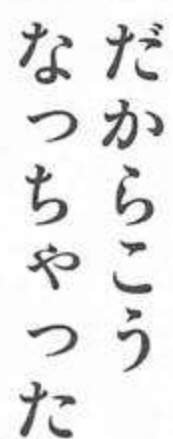 だからこう
なっちゃった